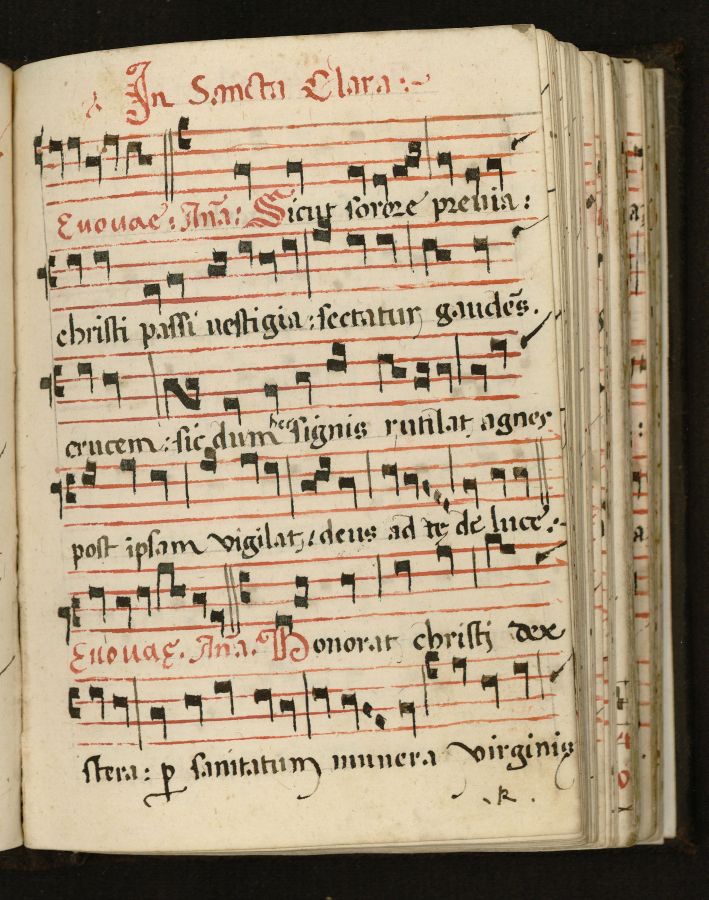 In Sancta Clara:
Euouae: Añа: Sicut sorore preuia:
christi passi uestigia: sectatur gaudēs.
crucem: sic dum hec signis rutilat agnes
post ipsam vigilat: deus ad te de luce:
Euouae. Aña. Honorat christi dex
stera: ꝑ sanitatum munera virginis
.k.